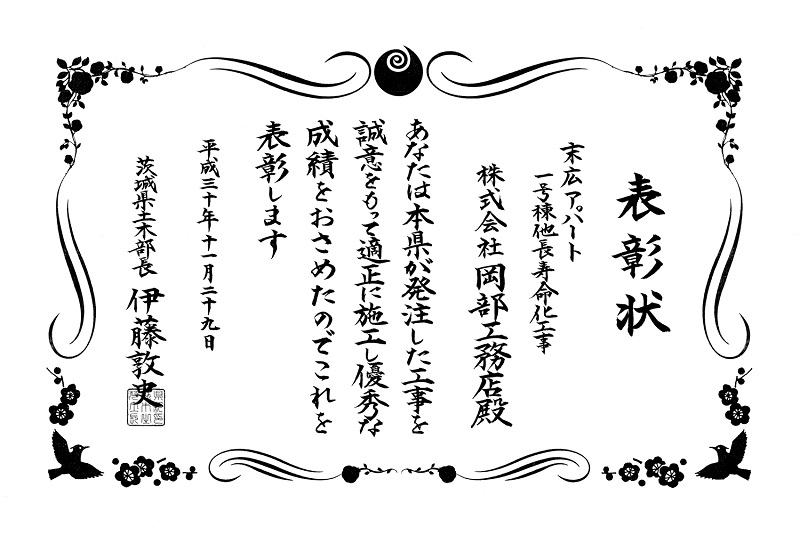 表彰状
末広アパート
一号棟他長寿命化工事
株式会社 岡部工務店殿
あなたは本県が発注した工事を
誠意をもって適正に施工し優秀な
成績をおさめたのでこれを
表彰します
平成三十年十一月二十九日
茨城県土木部長 伊藤敦史